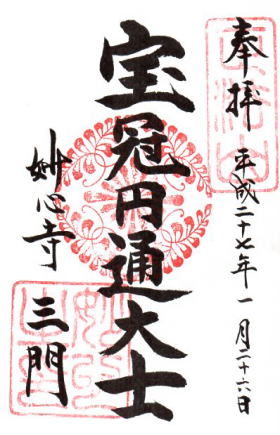 奉拝
平成二十七年一月二十六日
宝冠円通大士
妙心寺
三門